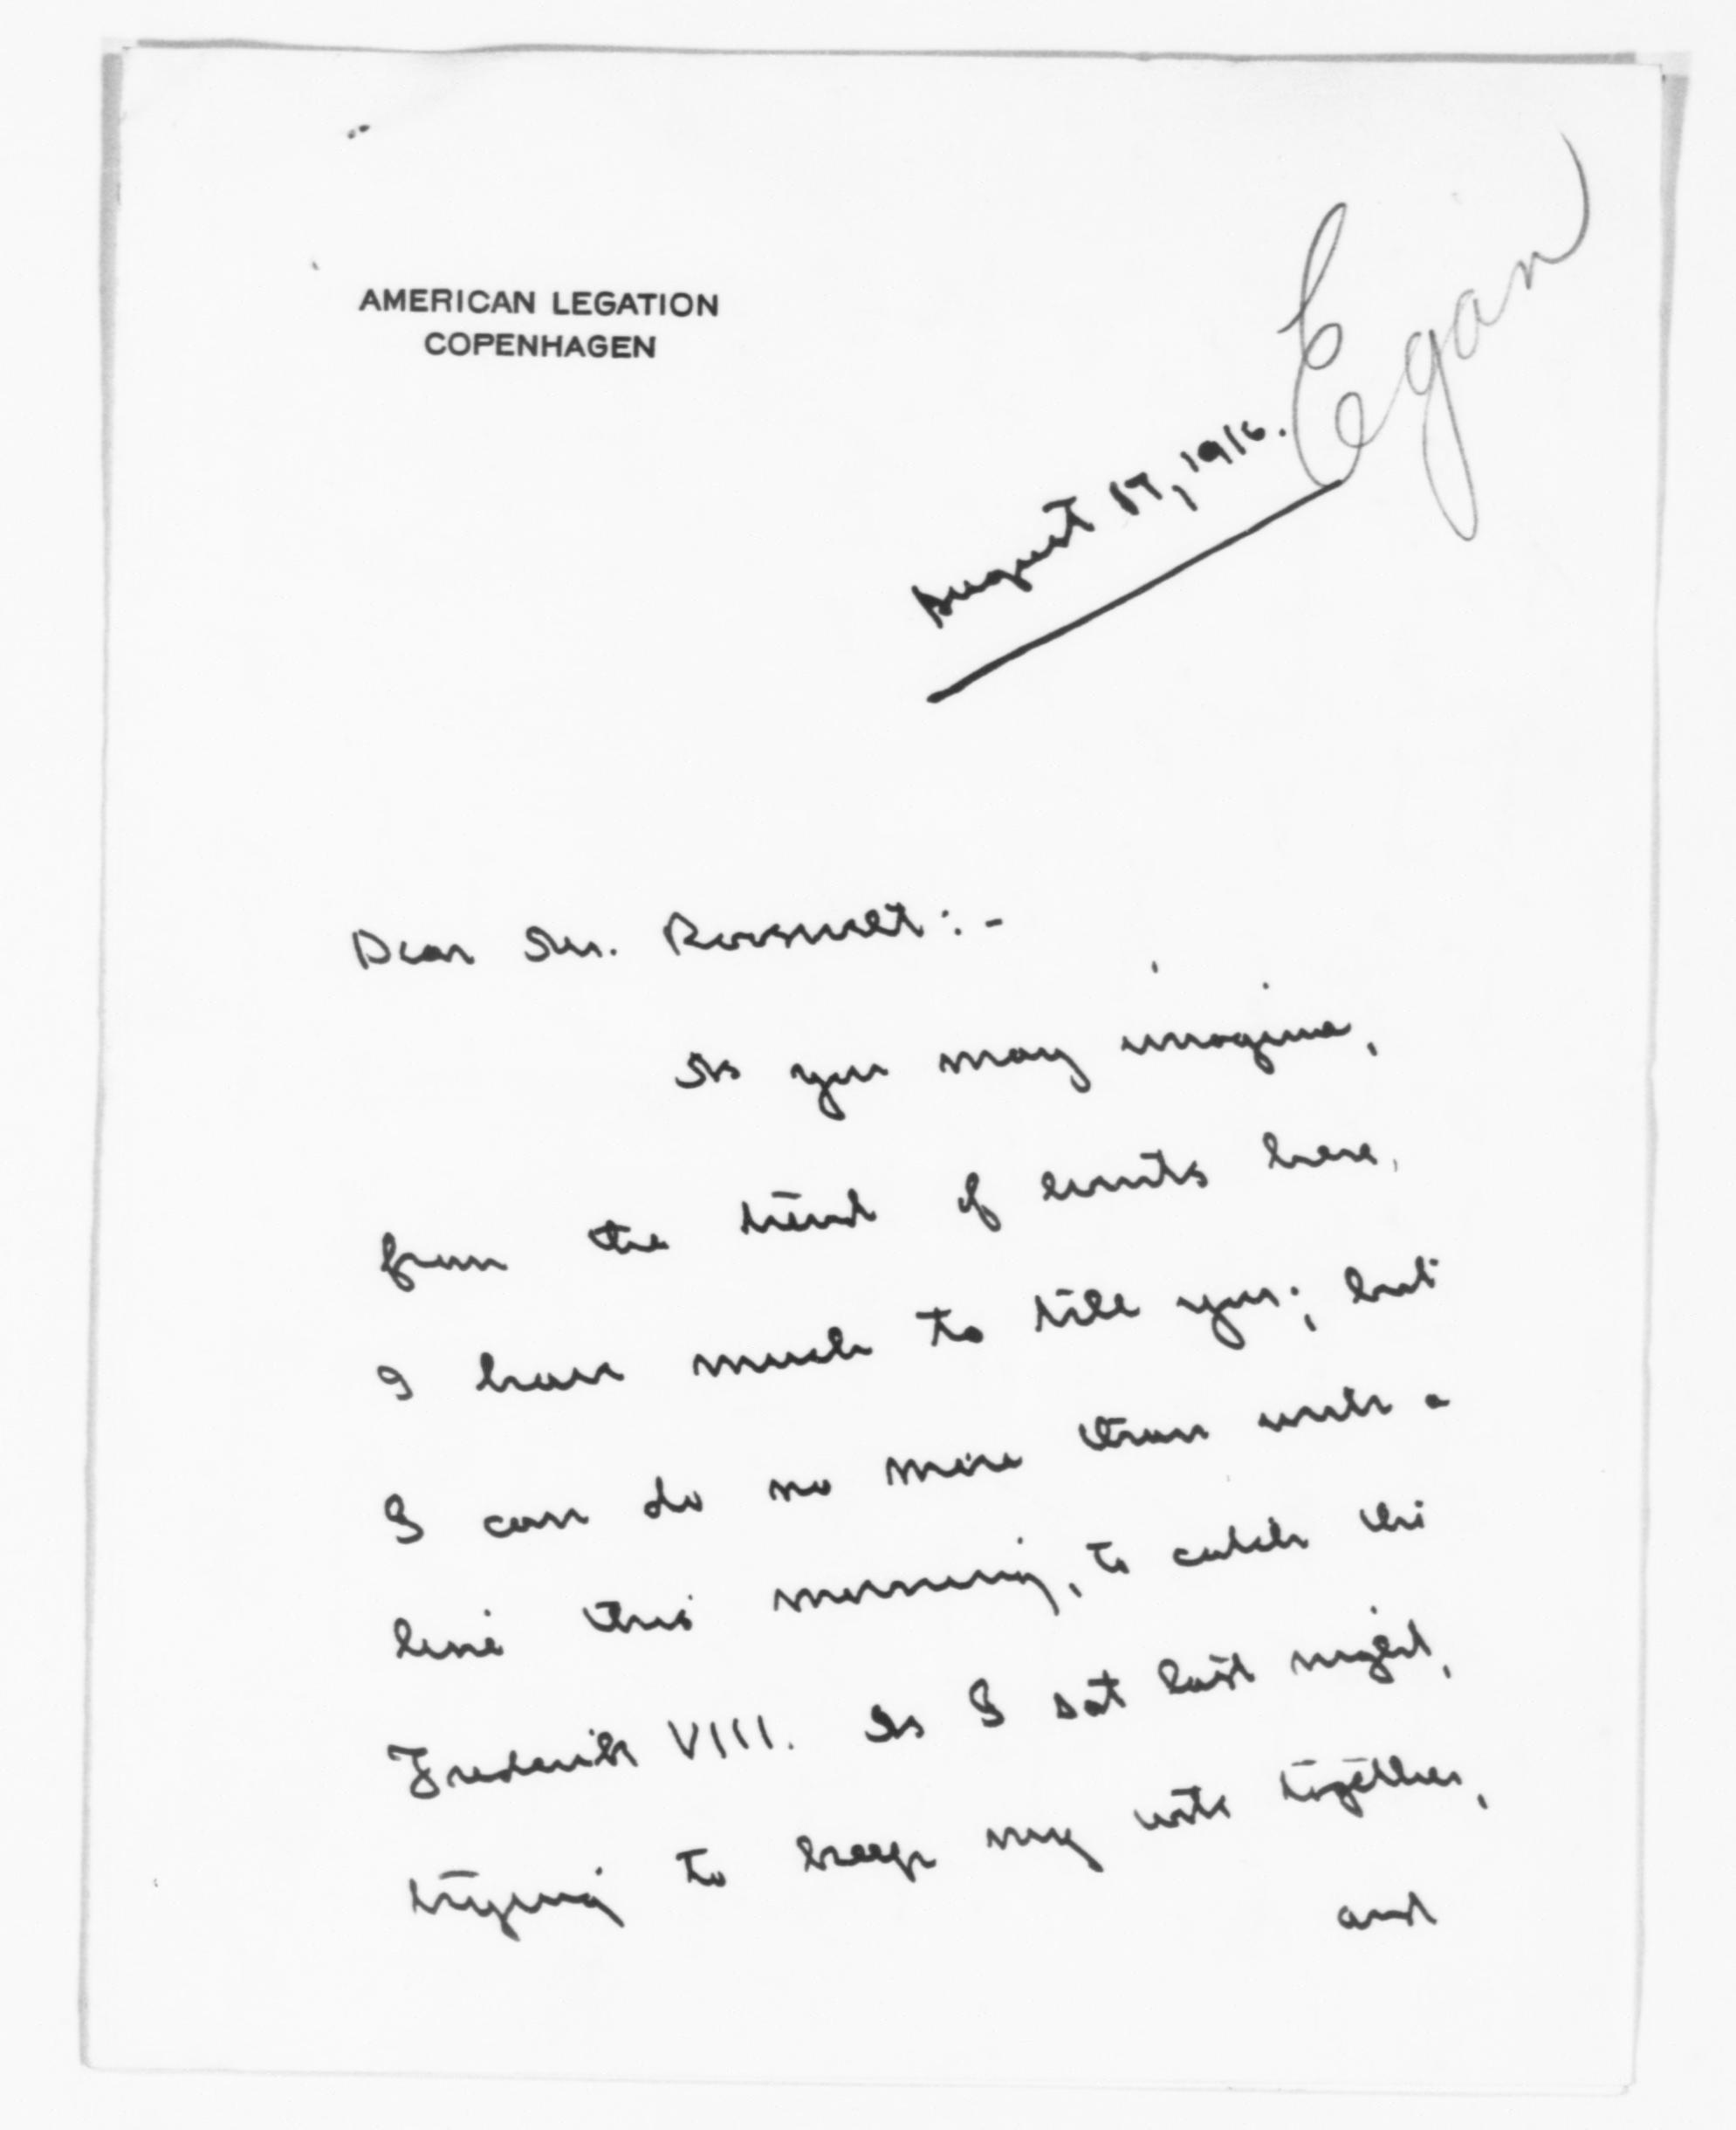 AMERICAN LEGATION
COPENHAGEN
Egan
August 17, 1916.
Dear Mr. Roosevelt:-
As you may imagine,
from the trend of events here,
I have much to tell you; but
I can do no more than write a
line this morning, to catch the
Frederik VIII. As I sat last night,
trying to keep my wits together,
and